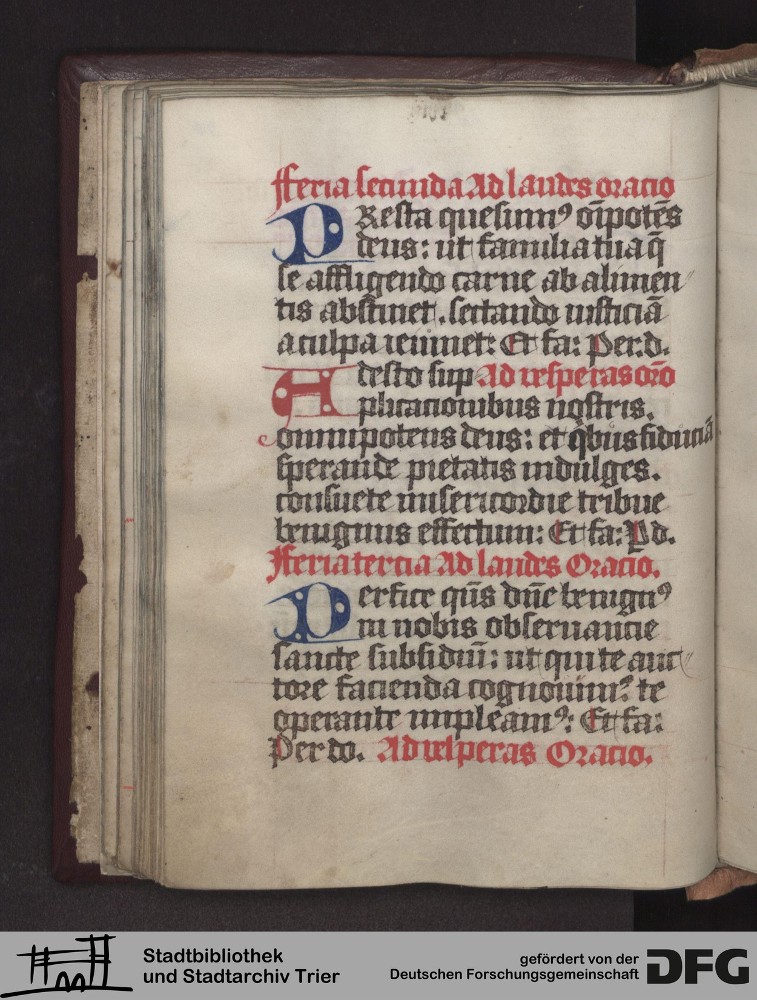 fferia secunda Ad laudes oracio
PResta quesumꝰ oīpotēs
deus: ut familia tua q̄
se affligendo carne ab alimen
tis abstinet. sectando iusticiā
a culpa ieiunet: Et fa: Per.d.
Adesto sup Ad vesperas orō
plicacionibus nostris.
omnipotens deus: et qͥbus fiduciā
sperande pietatis indulges.
consuete misericordie tribue
benignus effectum: Et fa: P d.
fferia tercia Ad laudes Oracio.
Perfice qūs dn̄e benignꝰ
in nobis obseruancie
sancte subsidiū: ut que te auc
tore facienda cognouimꝰ te
operante impleamꝰ: Et fa:
Per do. Ad vesperas Oracio.
Stadtbibliothek
und Stadtarchiv Trier
gefördert von der
Deutschen Forschungsgemeinschaft
DFG